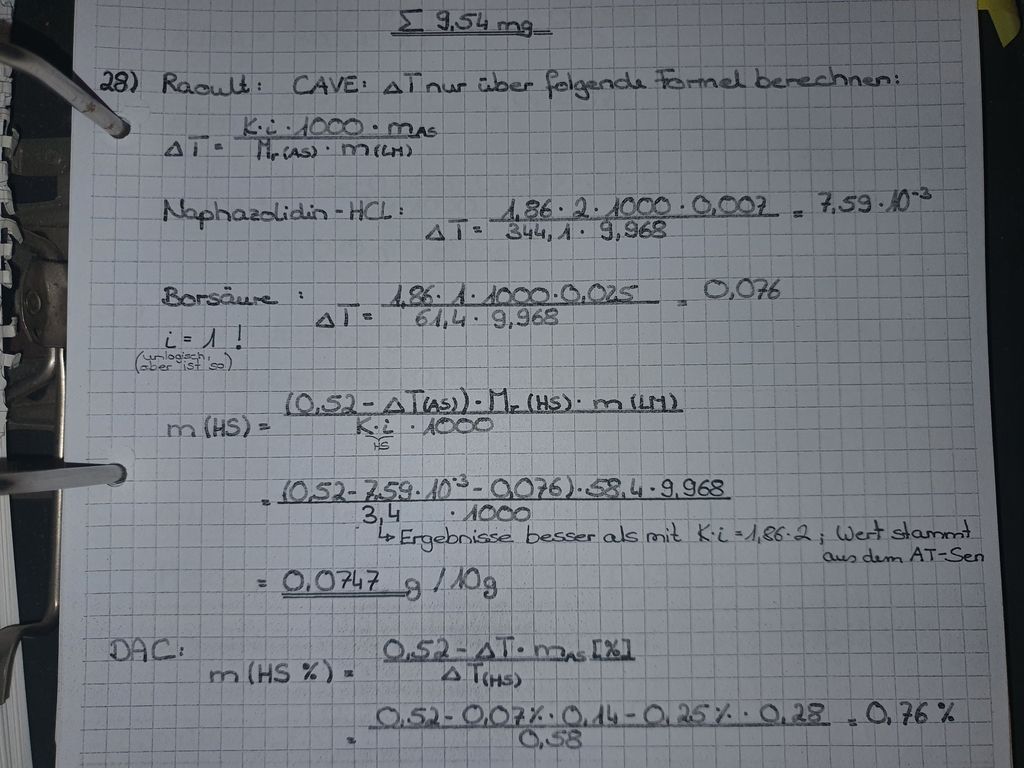 Σ 9,54 mg
28) Raoult: CAVE: ΔT nur über folgende Formel berechnen:
ΔT = K·i·1000·mAS / Mr(AS)·m(LM)
Naphazolidin-HCL: ΔT = 1,86·2·1000·0,007 / 344,1·9,968 = 7,59·10⁻³
Borsäure: ΔT = 1,86·1·1000·0,025 / 61,4·9,968 = 0,076
i = 1!
(unlogisch,
aber ist so)
m(HS) = (0,52 - ΔT(AS))·Mr(HS)·m(LM) / K·i·1000
HS
= (0,52 - 7,59·10⁻³ - 0,076)·58,4·9,968 / 3,4 ·1000
↳ Ergebnisse besser als mit K·i = 1,86·2; Wert stammt
aus dem AT-Sen
= 0,0747 g / 10g
DAC: m(HS %) = 0,52 - ΔT·mAS [%] / ΔT(HS)
= 0,52 - 0,07%·0,14 - 0,25%·0,28 / 0,58 = 0,76 %